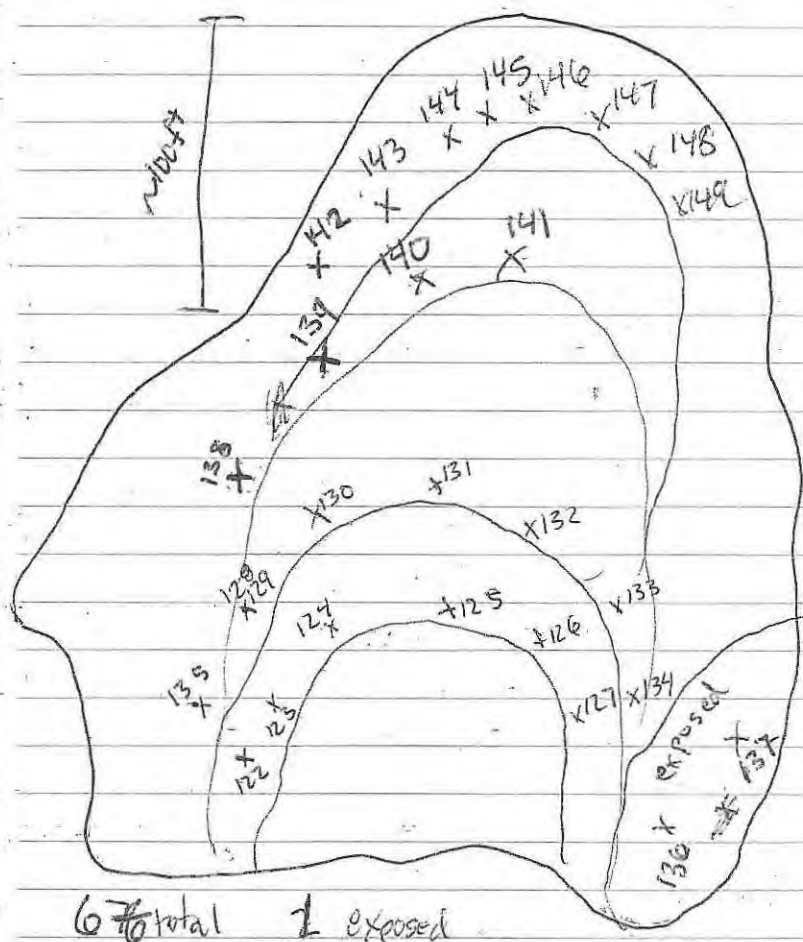 ~100ft
145
146
144
147
143
148
149
142
141
140
139
138
131
130
132
128
129
133
124
125
126
135
127
134
123
exposed
122
137
136
total 1 exposed